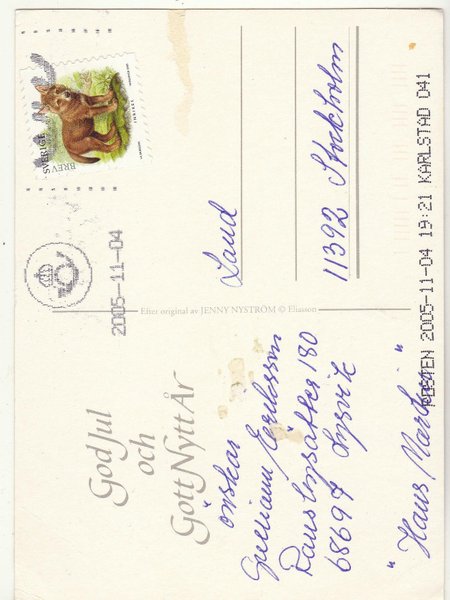 God Jul
och
Gott Nytt År
önskar
Eriksson
180
68694 Lysvik
"Hans Martin"
Efter original av JENNY NYSTRÖM © Eliasson
2005-11-04
SVERIGE
BREV
Land
11392 Stockholm
POSTEN 2005-11-04 19:21 KARLSTAD 041